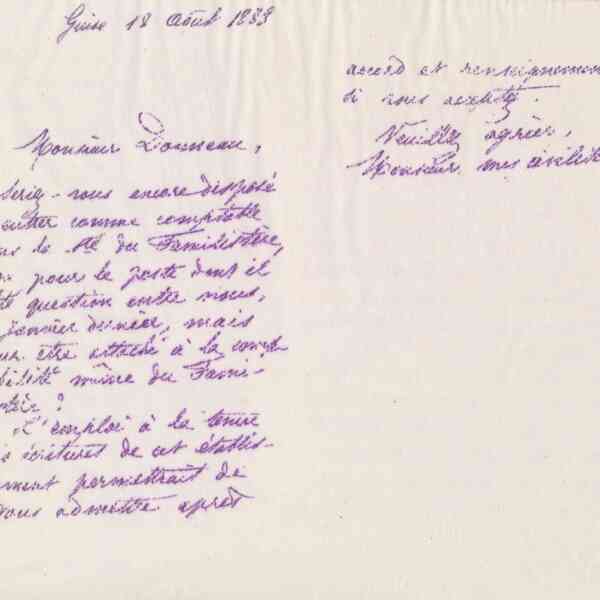 Guise 18 Août 1883
Monsieur Donneau,
Seriez-vous encore disposé
entrer comme comptable
la Sté du Familistère,
pour le poste dont il
question entre nous,
dernier, mais
être attaché à la compta
bilité même du Fami-
L'emploi à la tenue
écritures de cet établis-
ment permettrait de
vous admettre après
accord et renseignemen
si vous acceptez.
Veuillez agréer,
Monsieur, mes civilité